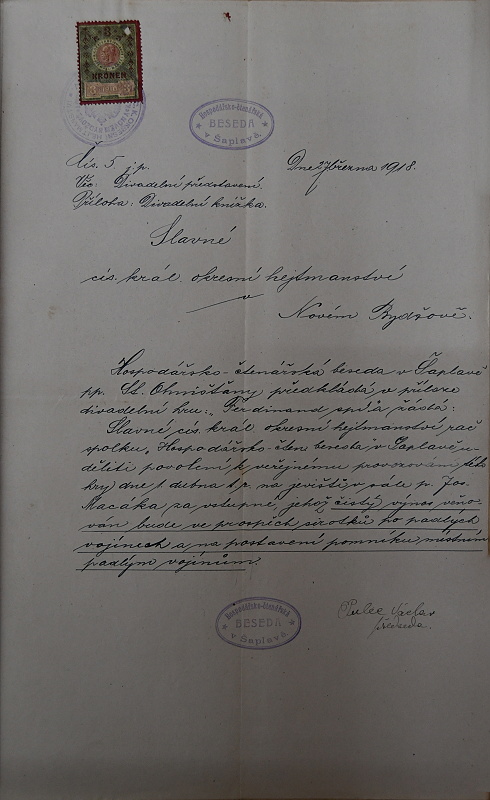 3
KRONEN
Hospodářsko-čtenářská
BESEDA
v Šaplavě.
Čís. 5 jp.
Dne 27 března 1918.
Věc: Divadelní představení.
Příloha: Divadelní knížka.
Slavné
cís. král. okresní hejtmanství
v
Novém Bydžově.
Hospodářsko-čtenářská beseda v Šaplavě
pp. St. Ohništany předkládá v příloze
divadelní hru: „Ferdinand spí a
Slavné cís. král okresní hejtmanství rač
spolku „Hospodářsko-čten beseda v Šaplavě u-
děliti povolení k veřejnému provozování této
hry dne 1 dubna t.r. na jevišti v sále p. Jos.
Macáka za vstupné, jehož čistý výnos věno-
ván bude ve prospěch sirotků po padlých
vojínech a na postavení pomníku místním
padlým vojínům.
Hospodářsko-čtenářská
BESEDA
v Šaplavě.
Václav
předseda.